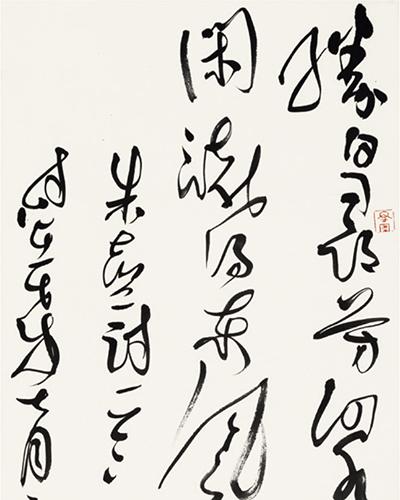 勝日尋芳泗水
閑識得東風
朱熹詩一首
七月